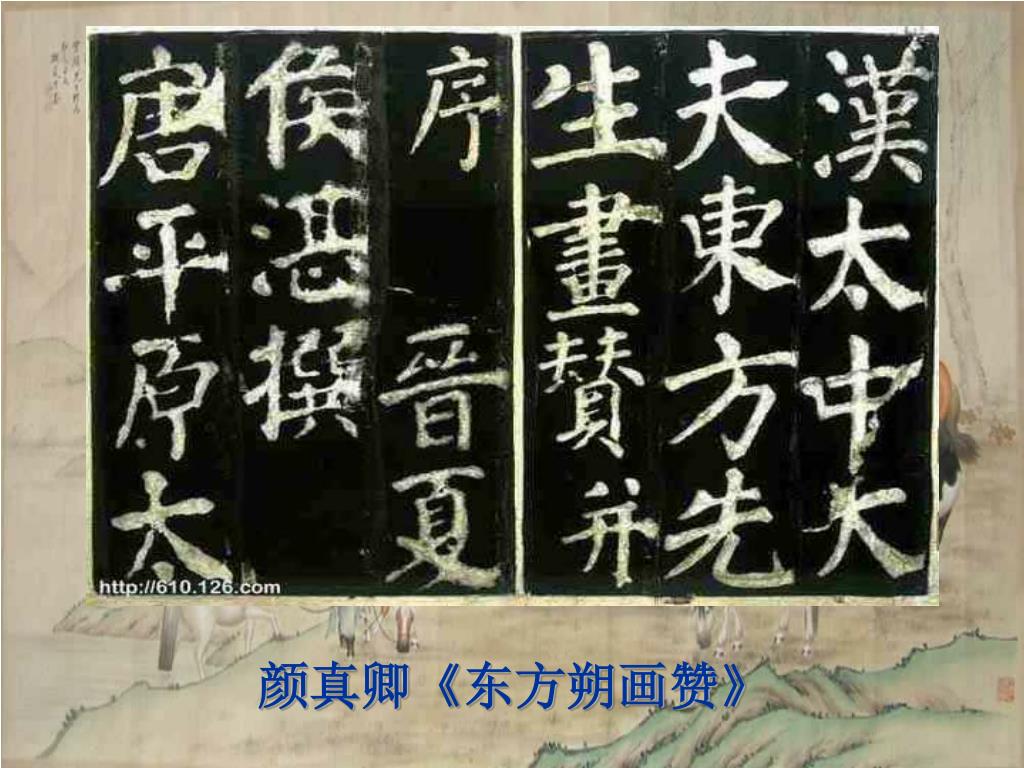 漢太中大
夫東方先
生畫贊并
序 晉夏
侯湛撰
唐平原太
http://610.126.com
颜真卿《东方朔画赞》